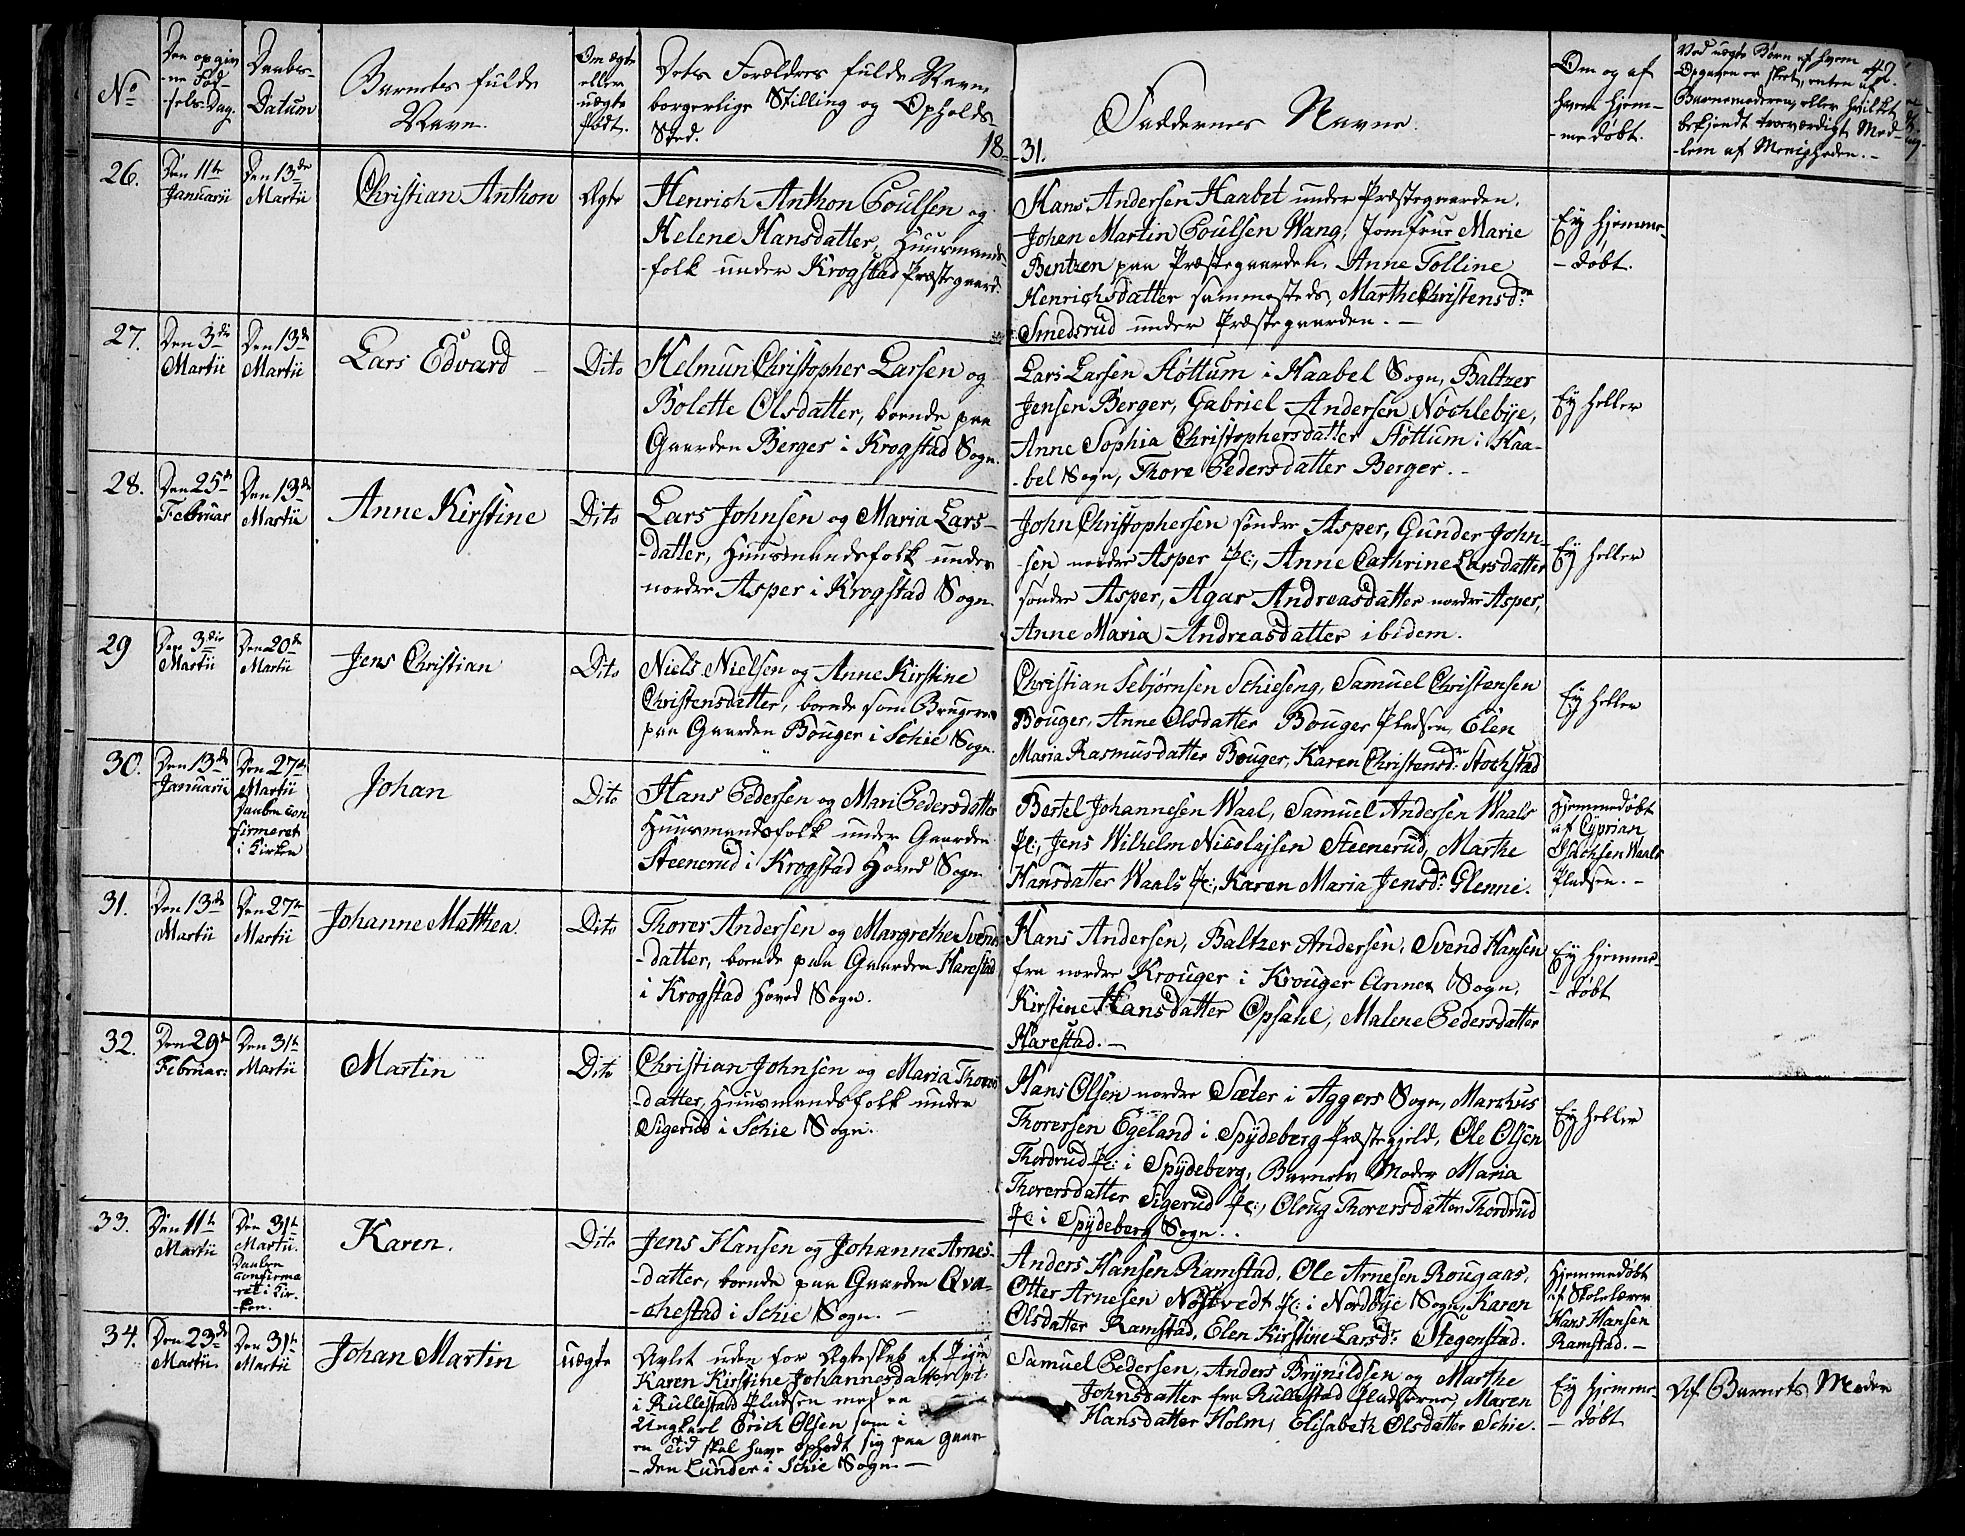 No
Den opgiv
-ne Fød-
-sels-Dag.
Daabs-
Datum
Barnets fulde
Navn.
Om ægte
eller
uægte
født.
Dets Forældres fulde Navne
borgerlige Stilling og Opholds-
Sted.
18-
-31.
Faddernes Navne.
Om og af
hvem hjem-
-medøbt.
Ved uægte Børn af hvem
Opgaven er skeet, enten af
Barnemoderen, eller hvilket
bekjendt troværdigt Med-
-lem af Menigheden. -
42.
26.
Den 11te
Januarii
Den 13de
Martii
Christian Anthon
Ægte
Henrich Anthon Poulsen og
Helene Hansdatter, Huusmands-
-folk under Krogstad Præstegaard.
Hans Andersen Haabet under Præstegaarden,
Johan Martin Poulsen Wang, Jomfrue Marie
Bentzen paa Præstegaarden, Anne Tolline
Henrichsdatter sammesteds, Marthe Christensdr
Smedsrud under Præstegaarden. -
Ey hjemme-
-døbt.
27.
Den 3die
Martii
Den 13de
Martii
Lars Edvard
Dito
Helmun Christopher Larsen og
Bolette Olsdatter, boende paa
Gaarden Berger i Krogstad Sogn.
Lars Larsen Støttum i Haabel Sogn, Baltzer
Jensen Berger, Gabriel Andersen Nøchlebye,
Anne Sophia Christophersdatter Støttum i Haa-
-bel Sogn, Thore Pedersdatter Berger. -
Ey heller
28.
Den 25de
Februar
Den 13de
Martii
Anne Kirstine
Dito
Lars Johnsen og Maria Lars-
-datter, Huusmandsfolk under
nordre Asper i Krogstad Sogn.
John Christophersen søndre Asper, Gunder John-
-sen nordre Asper Pl:, Anne Cathrine Larsdatter
søndre Asper, Agar Andreasdatter nordre Asper,
Anne Maria Andreasdatter ibidem.
Ey heller
29
Den 3die
Martii
Den 20de
Martii
Jens Christian
Dito
Niels Nielsen og Anne Kirstine
Christensdatter, boende som Brugere
paa Gaarden Bouger i Schie Sogn.
Christian Sebjørnsen Schieseng, Samuel Christensen
Bouger, Anne Olsdatter Bouger Pladsen, Elen
Maria Rasmusdatter Bouger, Karen Christensdr Stochstad
Ey heller
30.
Den 13de
Januarii
Den 27de
Martii
Daaben con
firmeret
i Kirken
Johan
Dito
Hans Pedersen og Mari Pedersdatter
Huusmandsfolk under Gaarden
Steenerud i Krogstad Hoved Sogn
Bertel Johannesen Waal, Samuel Andersen Waals
Pl:, Jens Wilhelm Nicolajsen Steenerud, Marthe
Hansdatter Waals Pl:, Karen Maria Jensdr Glenne.
Hjemmedøbt
af Cyprian
Isachsen Waals
Pladsen. -
31.
Den 13de
Martii
Den 27de
Martii
Johanne Mathea.
Dito
Thorer Andersen og Margrethe Svends
-datter, boende paa Gaarden Harestad
i Krogstad Hoved Sogn.
Hans Andersen, Baltzer Andersen, Svend Hansen
fra nordre Krouger i Krouger Annex Sogn,
Kirstine Hansdatter Opsahl, Malene Pedersdatter
Harestad. -
Ey hjemme-
-døbt
32.
Den 29de
Februar:
Den 31te
Martii
Martin
Dito
Christian Johnsen og Maria Thorers
-datter, Huusmandsfolk under
Sigerud i Schie Sogn.
Hans Olsen nordre Sæter i Aggers Sogn, Marchus
Thorersen Egeland i Spydeberg Præstegjeld, Ole Olsen
Thordrud Pl: i Spydeberg, Barnets Moder Maria
Thorersdatter Sigerud Pl:, Oloug Thorersdatter Thordrud
Pl: i Spydeberg Sogn. .
Ey heller
33.
Den 11te
Martii
Den 31te
Martii.
Daaben
confirme
-ret i Kir-
-ken.
Karen.
Dito
Jens Hansen og Johanne Arnes-
-datter, boende paa Gaarden Qva-
-chestad i Schie Sogn. -
Anders Hansen Ramstad, Ole Arnesen Rougaas,
Otter Arnesen Nøstvedt Pl: i Nordbye Sogn, Karen
Olsdatter Ramstad, Elen Kirstine Larsdr Stegenstad.
Hjemmedøbt
af Skolelærer
Hans Hansen
Ramstad. -
34.
Den 23de
Martii.
Den 31te
Martii
Johan Martin
uægte
Avlet uden for Ægteskab af Pigen
Karen Kirstine Johannesdatter
i Rullestad Pladsen med en
Ungkarl Erich Olsen som i
en Tid skal have opholdt sig paa Gaar
-den Lunder i Schie Sogn. -
Samuel Pedersen, Anders Brynildsen og Marthe
Johnsdatter fra Rullestad Pladserne, Maren
Hansdatter Holm, Elisabeth Olsdatter Schie.
Ey hjemme-
-døbt
Af Barnets Moder